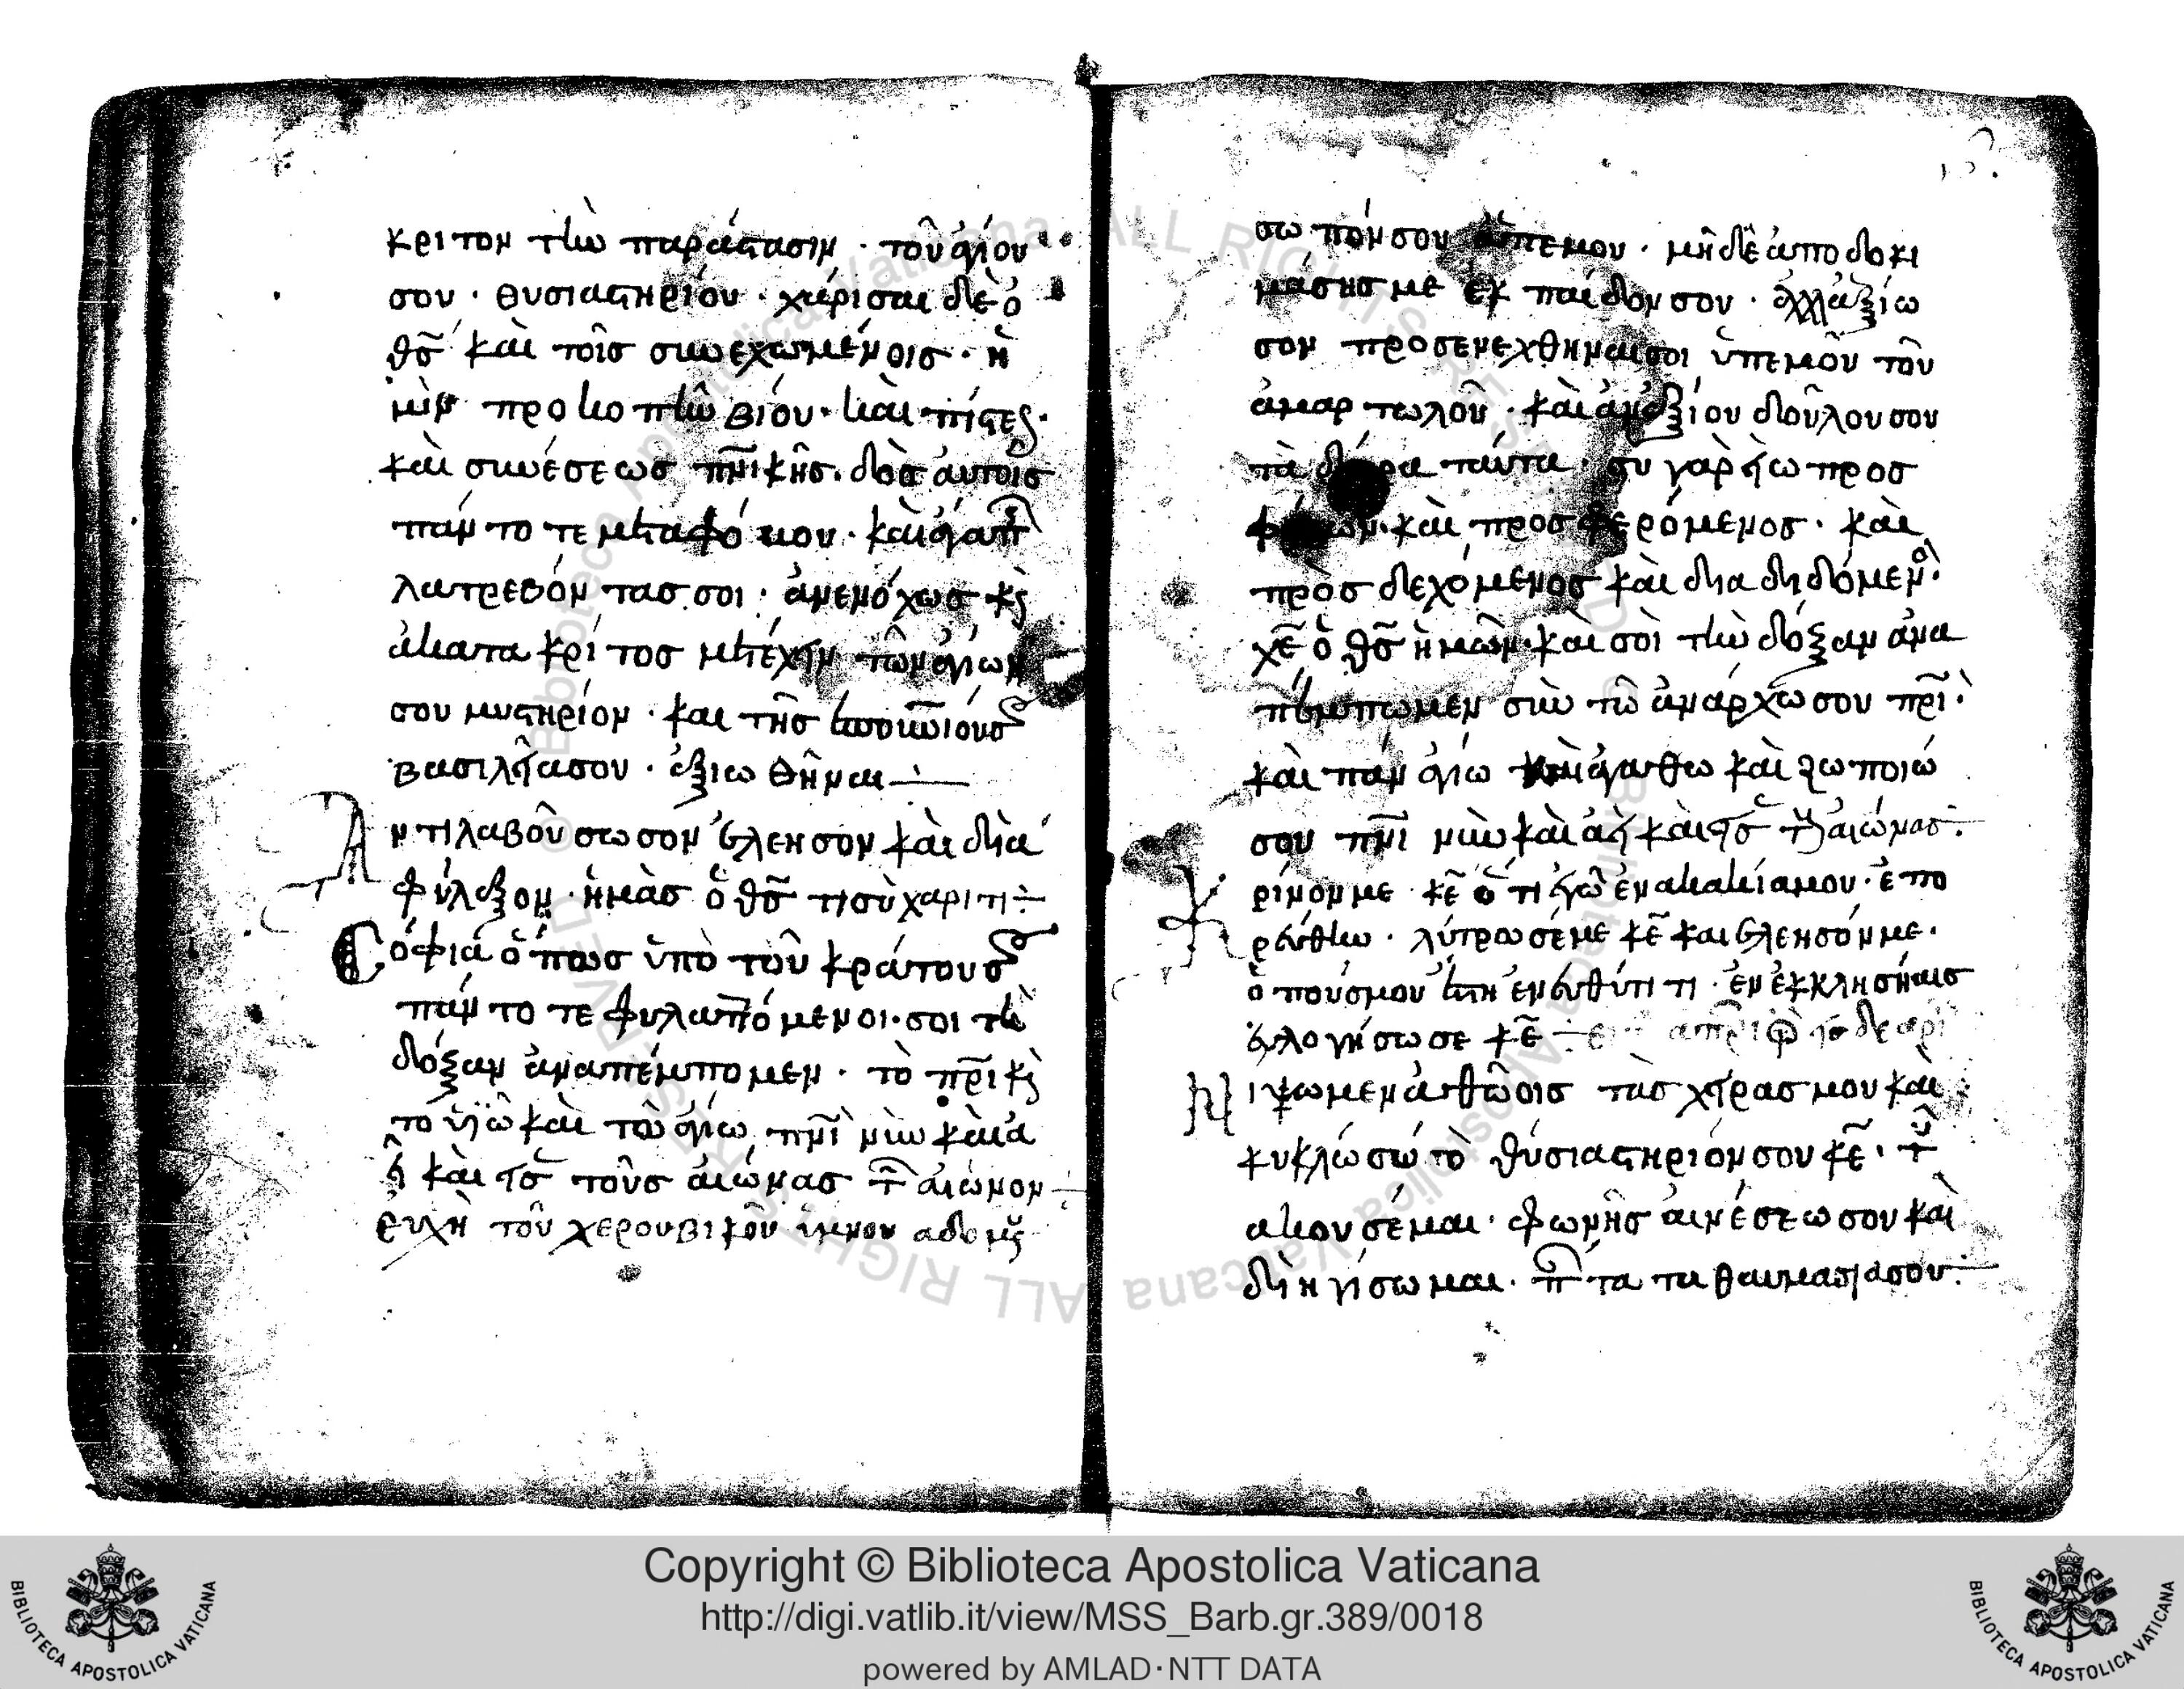 κριτον τὴν παράστασιν · τοῦ ἁγίου
σου · θυσιαστηρίου · χάρισαι δὲ ὁ
θς̃ καὶ τοῖσ συνεχωμένοισ · ἡ
μὶν προκοπὴν βίου · καὶ πίστεως ·
καὶ συνέσεωσ πνι̃κῆσ · δὸσ ἀυτοῖσ
πάντοτε μετα φόβου · καὶ ἀγάπης
λατρεβόν τασ σοι · ἀνενόχωσ κὲ
ἀκατακρίτοσ μετέχην τῶν ἁγίων
σου μυστηρίον · και τῆσ ἐπουρανίου
βασιλείασου · ἀξιωθῆναι
Αντιλαβοῦ σωσον ἐλεησον καὶ δια
φύλαξον · ἡμὰσ ὁ θς̃ τι σὺ χαριτι
Σόφιὰ ὅπωσ ὑπὸ τοῦ κράτουσ
πάντοτε φυλαττόμενοι · σοι τὴ
δόξαν ἀναπέμπομεν · τὸ πρι̃ κὲ
το ὑιῶ καὶ τὸ ἁγίω πνι̃ νὺν καὶ ἀ
εὶ καὶ εἰσ τοῦσ ἀιώνασ τῶν ἀιώνον
ευχὴ τοῦ χερουβικοῦ ὕμνου
σωπόν σου ἀπεμου · μηδὲ ἀποδοκι
μάσησ με ἐκ παίδον σου · ἀλλ ἀξίω
σον προσενεχθηναι σοι ὑπεμοῦ τοῦ
ἁμαρτωλοῦ · καὶ ἀναξίου δούλου σου
τὰ δῶρα ταύτα · συ γαρ ἥω προσ
φέρων · καὶ προσφερόμενοσ · καὶ
πρὸσ δεχόμενοσ καὶ δια δηδόμενος ·
χε̃ ὁ θς̃ ἡμῶν · καὶ σοὶ τὴν δόξαν ἀνα
πέμπωμεν σὺν τῶ ἀνάρχω σου πρι̃ ·
καὶ παν ἁγίω καὶ ἀγαθω καὶ ζωποιώ
σου πνι̃ νὺν καὶ ἀεὶ καὶ εἰσ τοὺς αἰώνασ
Κρίνον με κε̃ ὅτι ἐγὼ ἐν ακακία μου · ἐπο
ρεύθην · λύτρωσέ με κε̃ και ἐλεησόν με ·
ὁ πούσμου ἔστη ἐν ευθύτιτι · ἐν ἐκκλησήαισ
ἐυλογήσω σε κε̃
Νίψωμεν ἀθώοισ τὰσ χείρασ μου καὶ
κυκλώσω τὸ θύσιαστηριόν σου κε̃ · τοῦ
ακουσέμαι · φωνῆσ ἀινέσεωσ σου καὶ
διηγίσωμαι · πάντα τα θαυμασιασου
Copyright © Biblioteca Apostolica Vaticana
http://digi.vatlib.it/view/MSS_Barb.gr.389/0018
powered by AMLAD·NTT DATA
BIBLIOTECA APOSTOLICA VATICANA
BIBLIOTECA APOSTOLICA VATICANA